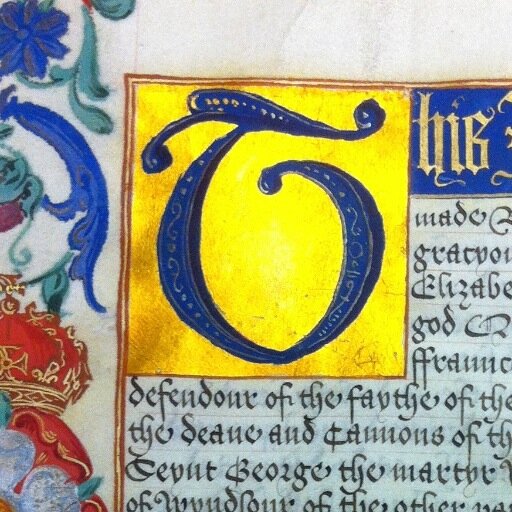 This
made
gracyou
Elizabe
god
ffraunce
defendour of the faythe of the
the deane and Cannons of th
Seynt George the martyr
of Wyndsour of the other par